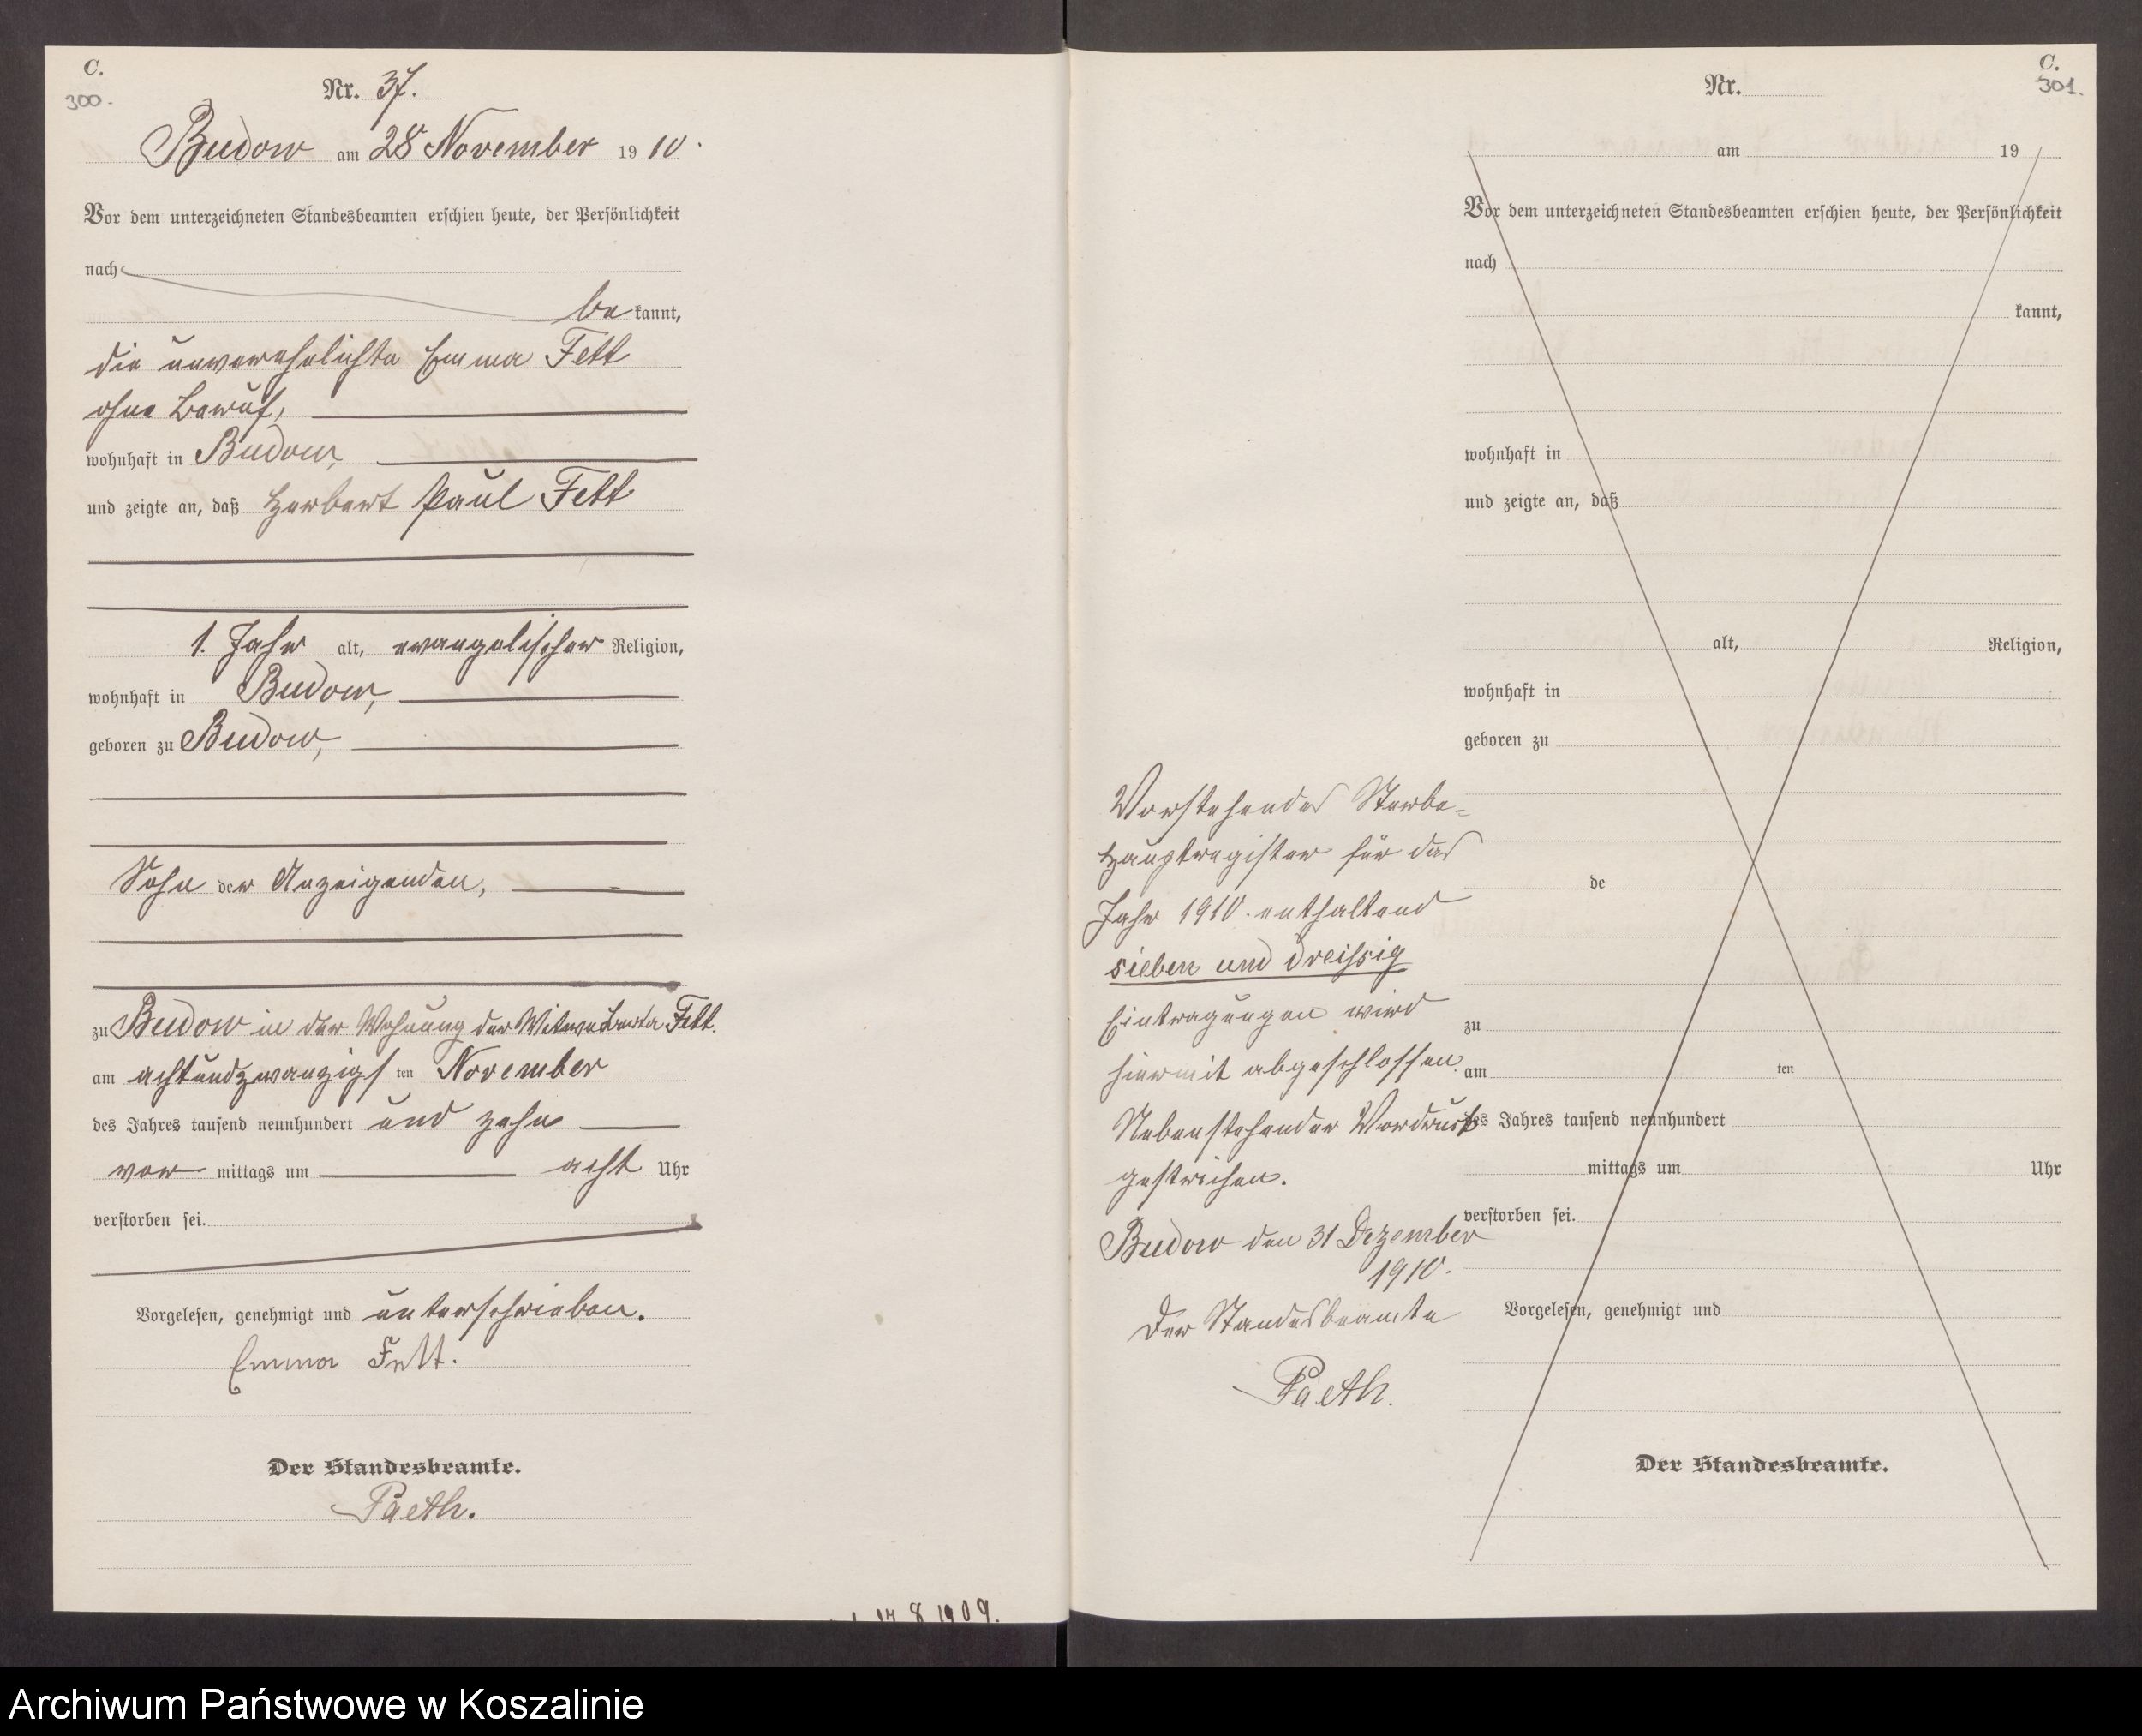 C.
300.
Nr. 37.
Budow am 28 November 1910.
Vor dem unterzeichneten Standesbeamten erschien heute, der Persönlichkeit
nach
be kannt,
die unverehelichte Emma Fett
ohne Beruf,
wohnhaft in Budow,
und zeigte an, daß Herbert Paul Fett
1. Jahr alt, evangelischer Religion,
wohnhaft in Budow,
geboren zu Budow,
Sohn der Anzeigenden,
zu Budow in der Wohnung der Witwe Berta Fett.
am achtundzwanzigs ten November
des Jahres tausend neunhundert und zehn
vor mittags um acht Uhr
verstorben sei.
Vorgelesen, genehmigt und unterschrieben.
Emma Fett.
Der Standesbeamte.
Paeth.
8 1909.
C.
301.
Nr.
am 19
Vor dem unterzeichneten Standesbeamten erschien heute, der Persönlichkeit
nach
kannt,
wohnhaft in
und zeigte an, daß
alt, Religion,
wohnhaft in
geboren zu
de
zu
am ten
des Jahres tausend neunhundert
mittags um Uhr
verstorben sei.
Vorgelesen, genehmigt und
Der Standesbeamte.
Vorstehendes Sterbe-
Hauptregister für das
Jahr 1910. enthaltend
sieben und dreissig
Eintragungen wird
hiermit abgeschlossen.
Nebenstehender Vordruck
gestrichen.
Budow den 31 Dezember
1910.
Der Standesbeamte
Paeth.
Archiwum Państwowe w Koszalinie